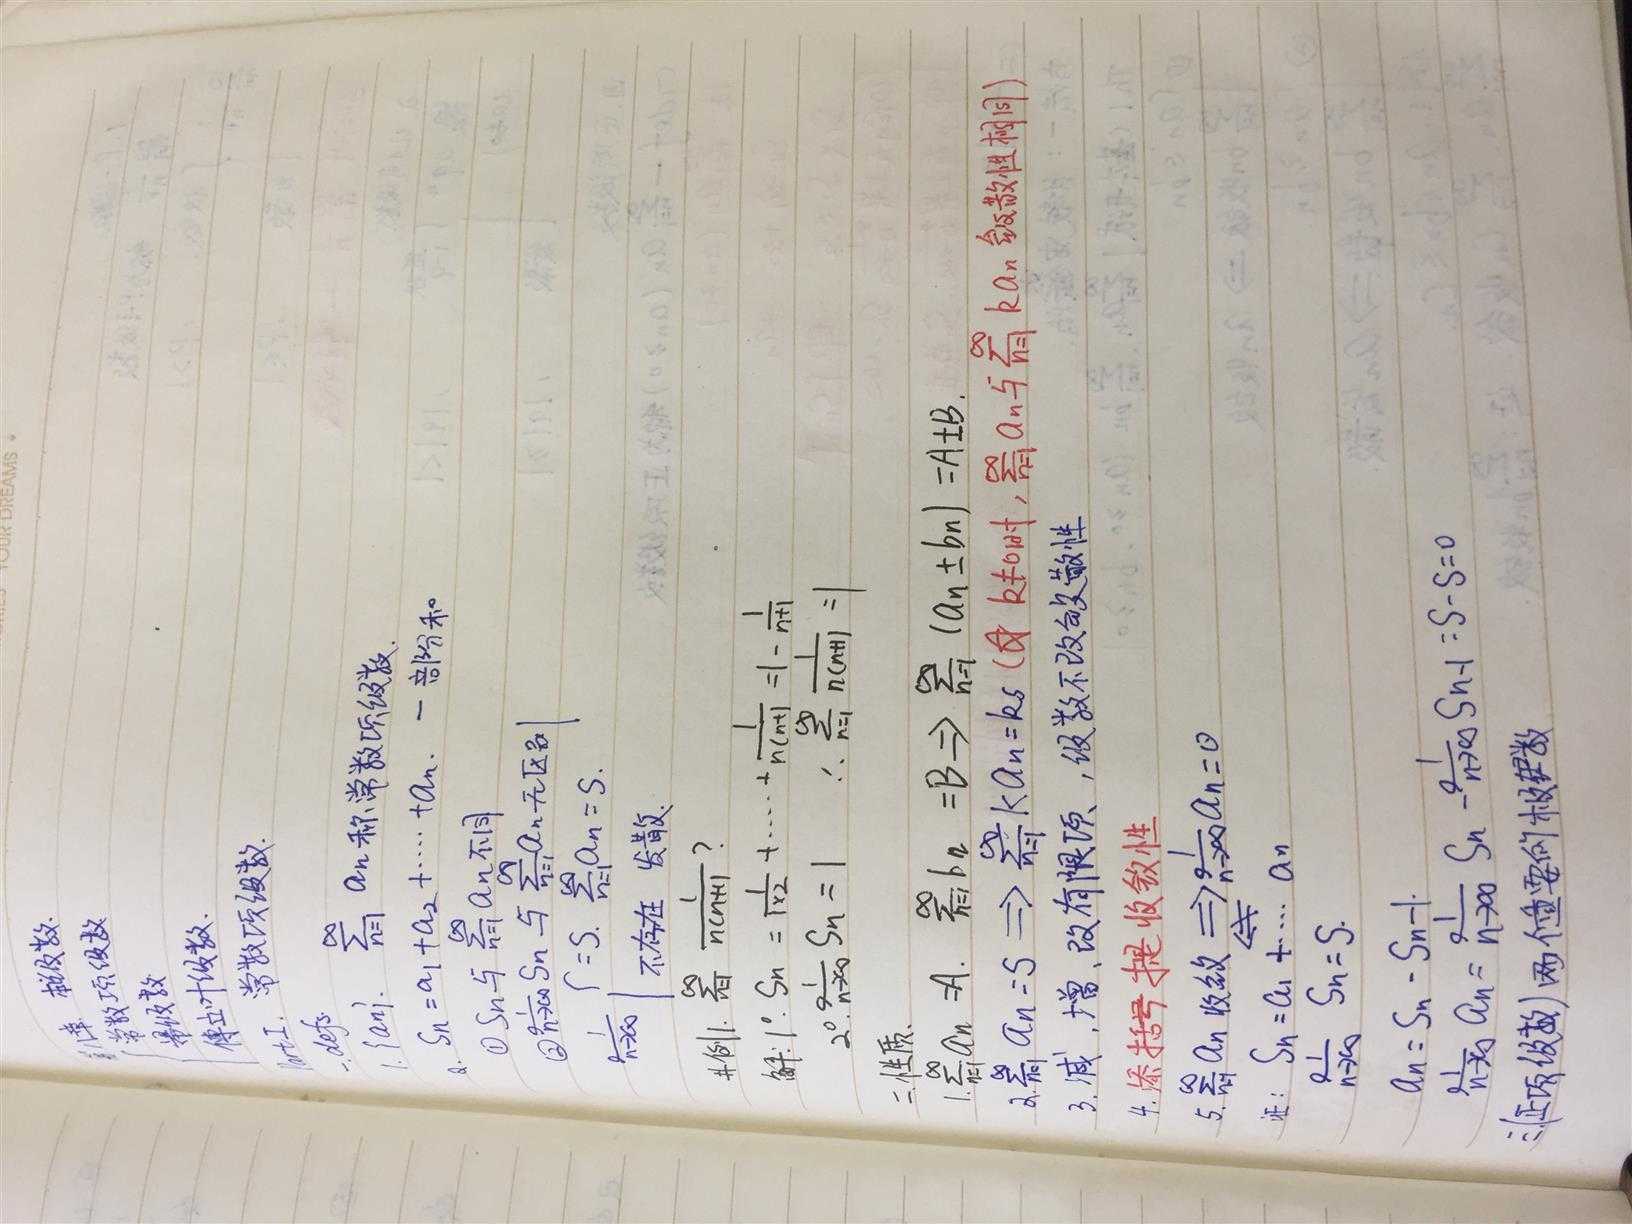 YOUR DREAMS
级数.
常数项级数
幂级数
傅立叶级数.
Part I. 常数项级数.
一. defs
1. {an}. ∑_{n=1}^{∞} an 称常数项级数.
2. Sn = a1 + a2 + …… + an. — 部分和
① Sn 与 ∑_{n=1}^{∞} an 不同
② lim_{n→∞} Sn 与 ∑_{n=1}^{∞} an 无区别
lim_{n→∞} { = S. ∑_{n=1}^{∞} an = S.
不存在 发散.
#例1. ∑_{n=1}^{∞} 1/n(n+1) ?
解: 1°. Sn = 1/1×2 + …… + 1/n(n+1) = 1 - 1/n+1
2°. lim_{n→∞} Sn = 1 ∴ ∑_{n=1}^{∞} 1/n(n+1) = 1
二. 性质.
1. ∑_{n=1}^{∞} an = A. ∑_{n=1}^{∞} bn = B ⇒ ∑_{n=1}^{∞} (an ± bn) = A±B.
2. ∑_{n=1}^{∞} an = S ⇒ ∑_{n=1}^{∞} kan = ks (当 k≠0时, ∑_{n=1}^{∞} an 与 ∑_{n=1}^{∞} kan 敛散性相同)
3. 减, 增, 改有限项, 级数不改敛散性
4. 添括号提收敛性
5. ∑_{n=1}^{∞} an 收敛 ⇒ lim_{n→∞} an = 0
⇍
证: Sn = a1 + …… an
lim_{n→∞} Sn = S.
an = Sn - Sn-1.
lim_{n→∞} an = lim_{n→∞} Sn - lim_{n→∞} Sn-1 = S-S=0
三. (正项级数) 两个重要的级数